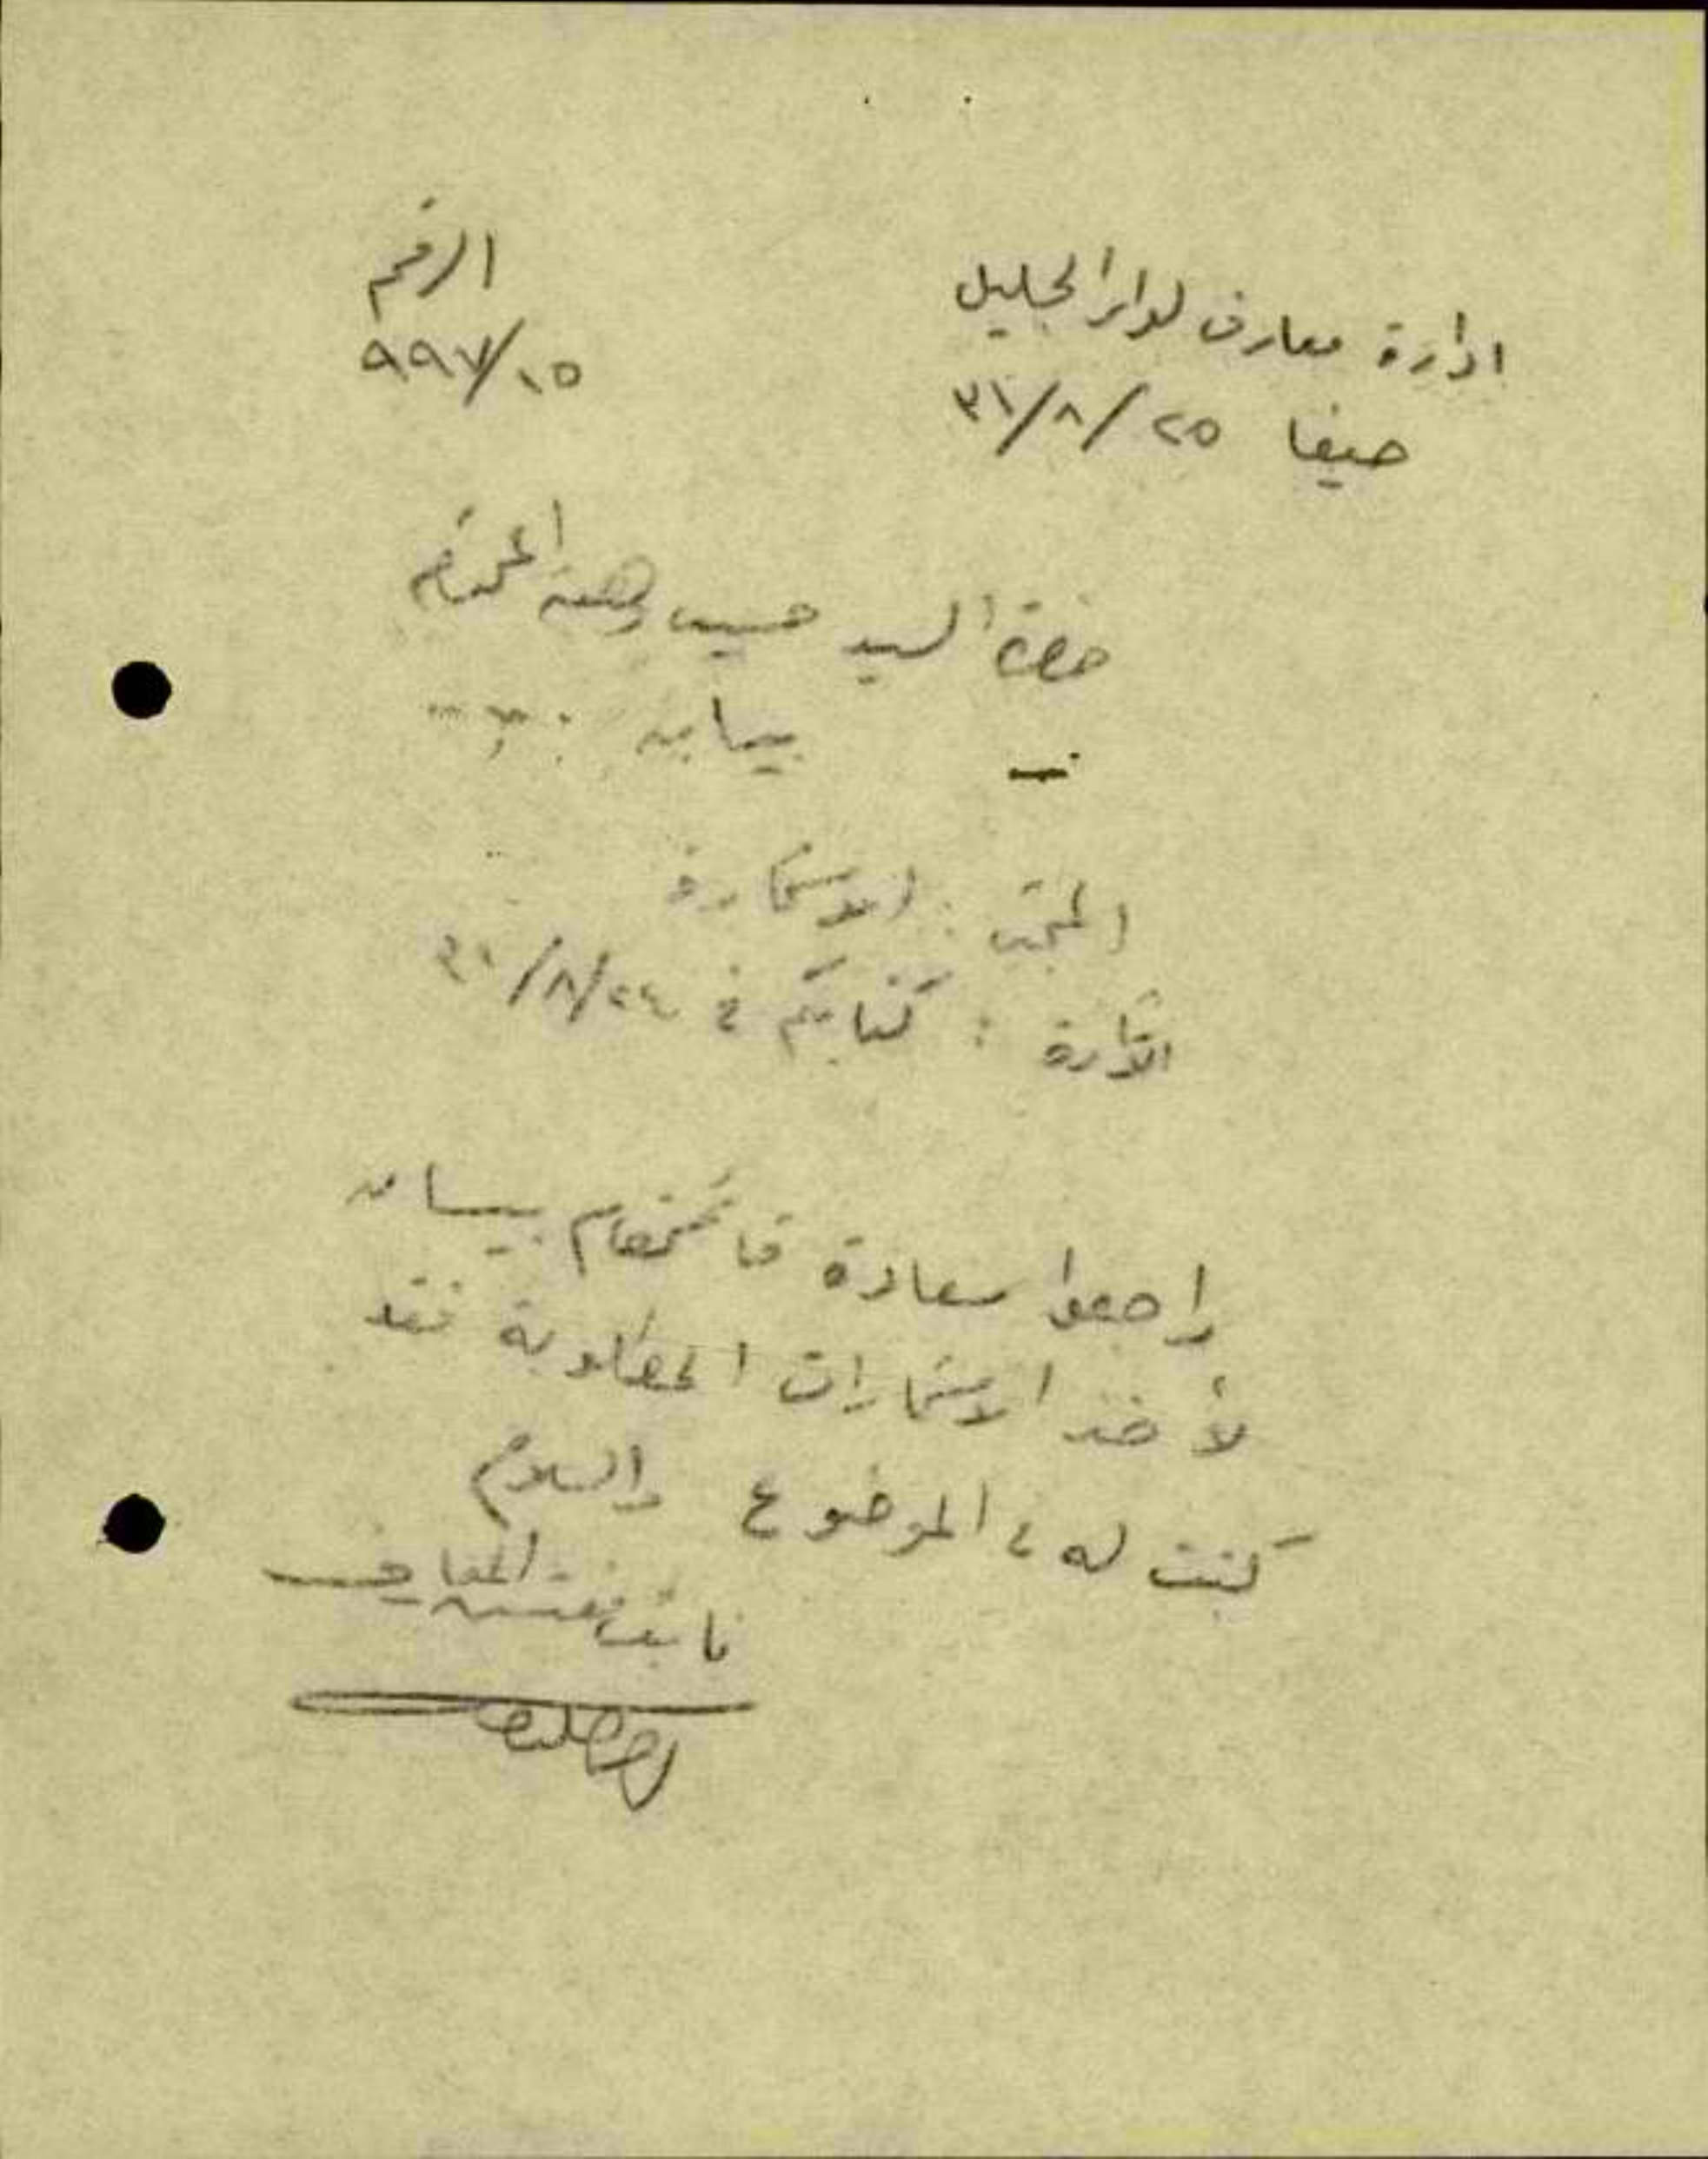 ادارة معارف لواء الجليل
حيفا ٢٥/٨/٣١
الرقم
٩٩٧/١٥
حضرة السيد حسين المحترم
بيسان
المبحث : الاستمارة
الاشارة : كتابكم في ٢٤/٨/٣١
راجعوا سعادة قائمقام بيسان
لأخذ الاستمارات المطلوبة فقد
كتبت له في الموضوع والسلام
نائب مفتش المعارف